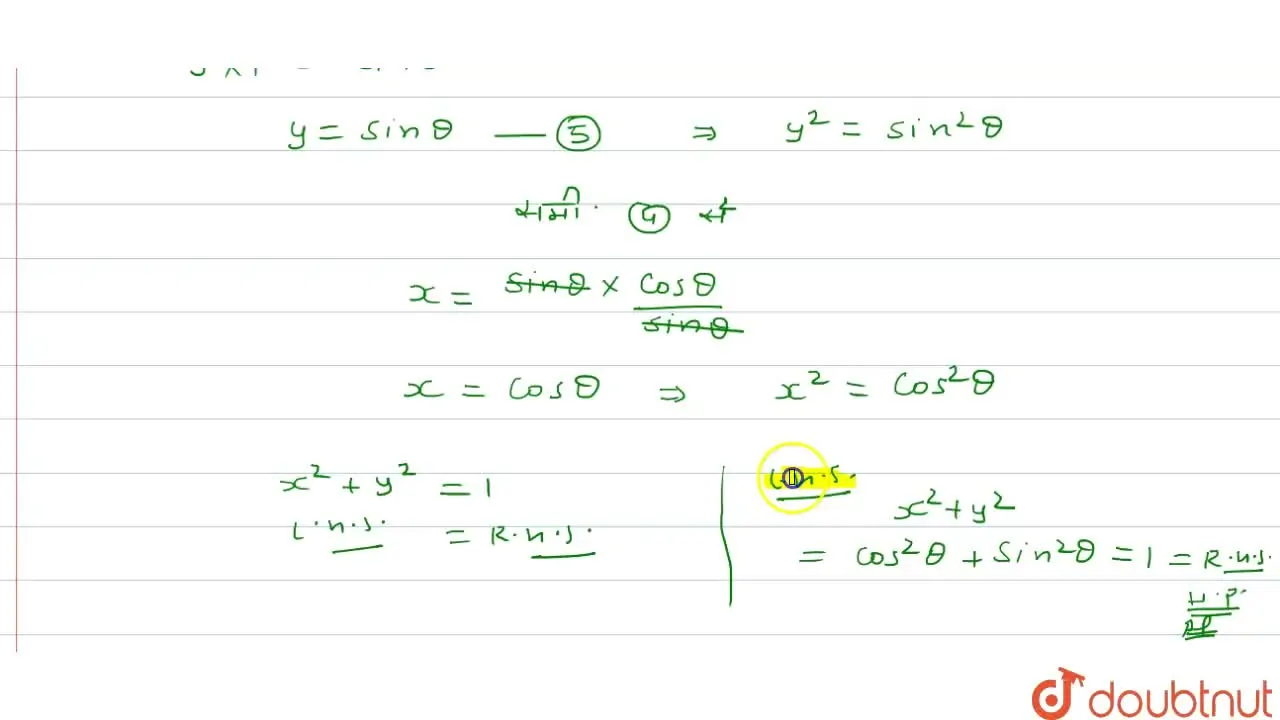 y = sinθ — ⑤ ⇒ y² = sin²θ
④ से
x = sinθ × cosθ / sinθ
x = cosθ ⇒ x² = cos²θ
x² + y² = 1
L.H.S. = R.H.S.
L.H.S.
x² + y²
= cos²θ + sin²θ = 1 = R.H.S.
H.P.
doubtnut